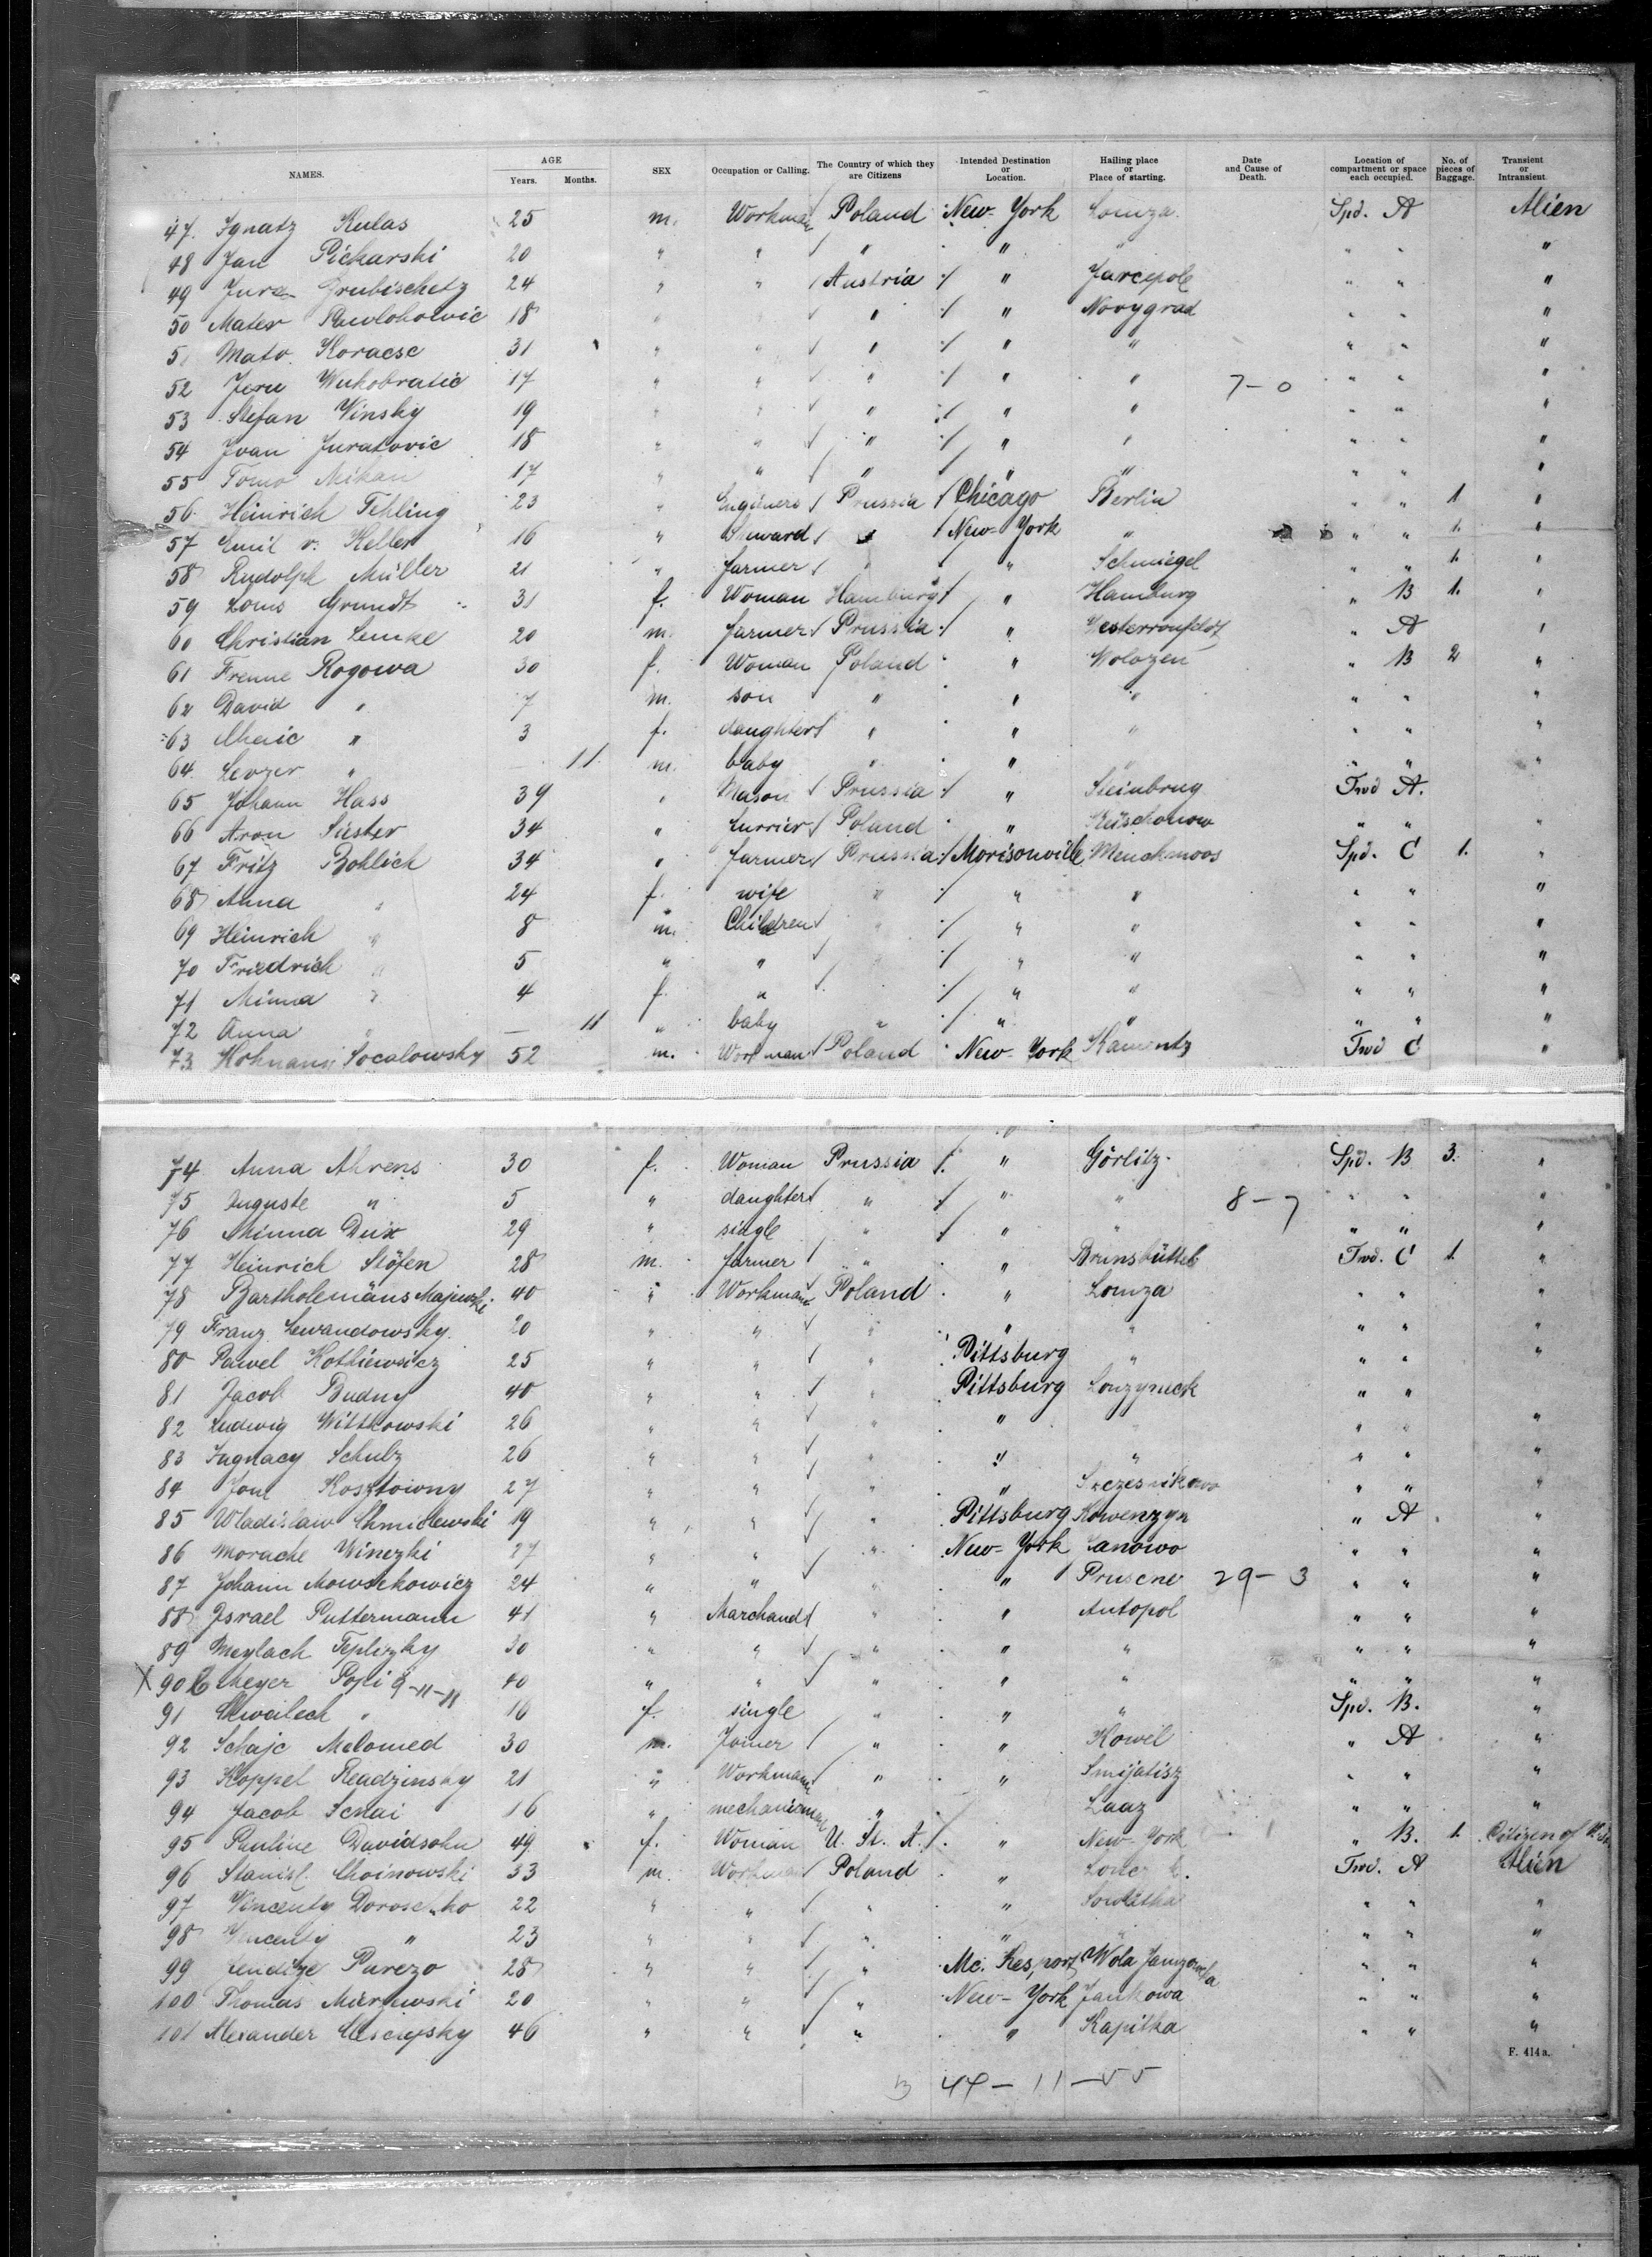 NAMES. AGE Years. Months. SEX Occupation or Calling. The Country of which they are Citizens Intended Destination or Location. Hailing place or Place of starting. Date and Cause of Death. Location of compartment or space each occupied. No. of pieces of Baggage. Transient or Intransient.
47. Ignatz Kulas 25 m. Workman Poland New-York Lomza. Spd. A Alien
48 Jan Pickarski 20 " " " " " " " "
49 Jure Grubischetz 24 " " Austria " Jarcepole " " "
50 Mater Pawlokowic 18 " " " " Novygrad " " "
5 Mato Koracsc 31 " " " " " " " "
52 Jeru Wukobratic 17 " " " " " 7-0 " " "
53 Stefan Vinsky 19 " " " " " " " "
54 Ivan Juratovic 18 " " " " " " " "
55 Tomo Mikan 17 " " " " " " " "
56 Heinrich Fehling 23 " Engineer Prussia Chicago Berlin " " 1 "
57 Emil v. Keller 16 " Steward " New-York " " " 1. "
58 Rudolph Müller 21 " farmer " " Schmiegel " " 1. "
59 Louis Grundt 31 f. Woman Hamburg " Hamburg " B 1. "
60 Christian Lemke 20 m. farmer Prussia " " A "
61 Frenne Rogowa 30 f. Woman Poland " Wolozen " B 2 "
62 David " 7 m. son " " " " " "
63 " 3 f. daughter " " " " " "
64 Levzer " — 11 m. baby " " " " " "
65 Johann Hass 39 " Mason Prussia " Steinbrug Twd A.
66 Aron Sister 34 " Currier Poland " " " "
67 Fritz Bohlich 34 " farmer Prussia Morisonville Menckmoos Spd. C 1. "
68 Anna " 24 f. wife " " " " " "
69 Heinrich " 8 m. Children " " " " " "
70 Friedrich " 5 " " " " " " " "
71 Minna " 4 f. " " " " " "
72 Anna " — 11 " baby " " " " " "
73 Socalowsky 52 m. Workman Poland New-York Kamentz Twd C "
74 Anna Ahrens 30 f. Woman Prussia " Görlitz. Spd. B 3. "
75 Auguste " 5 " daughter " " " 8-7 " " "
76 Minna Dux 29 " single " " " " " "
77 Heinrich Stöfen 28 m. farmer " " Brunsbüttel Twd. C 1. "
78 Bartholemäus Majewski 40 " Workman Poland " Lomza " " "
79 Franz Lewandowsky. 20 " " " " " " " "
80 Pawel Kotliewicz 25 " " " Pittsburg " " " "
81 Jacob Budny 40 " " " Pittsburg " "
82 Ludwig Wittkowski 26 " " " " " " "
83 Ingnacy Schulz 26 " " " " " " " "
84 Kosztowny 27 " " " " " " "
85 Wladislaw Chmielewski 19 " " " Pittsburg Kowenzyn " A "
86 Morache Winezki 27 " " " New-York Janowo " " "
87 Johann Mowschkowicz 24 " " " " Pruscne 29-3 " " "
88 Israel Puttermann 41 " Marchand " " Antopol " " "
89 Meylach Teplizky 30 " " " " " " " "
X 90 Meyer 9-11-11 40 " " " " " " " "
91 " 16 f. single " " " Spd. B. "
92 Schaje Melomed 30 m. Joiner " " Kowel " A "
93 Koppel Readzinsky 21 " Workman " " Smijatisz " " "
94 Jacob 16 " " " Laaz " " "
95 Pauline Davidsohn 49 f. Woman U. St. A. " New-York " B. 1. Citizen of U.St.
96 Stanisl. Choinowski 33 m. Workman Poland " Twd. A Alien
97 Vincenty 22 " " " " " " "
98 Vincenty " 23 " " " " " " " "
99 Purezo 28 " " " Mc. Kesport Wola " " "
100 Thomas 20 " " " New-York Jankowa " " "
101 Alexander 46 " " " " Kapitka " " "
F. 414a.
44-11-55